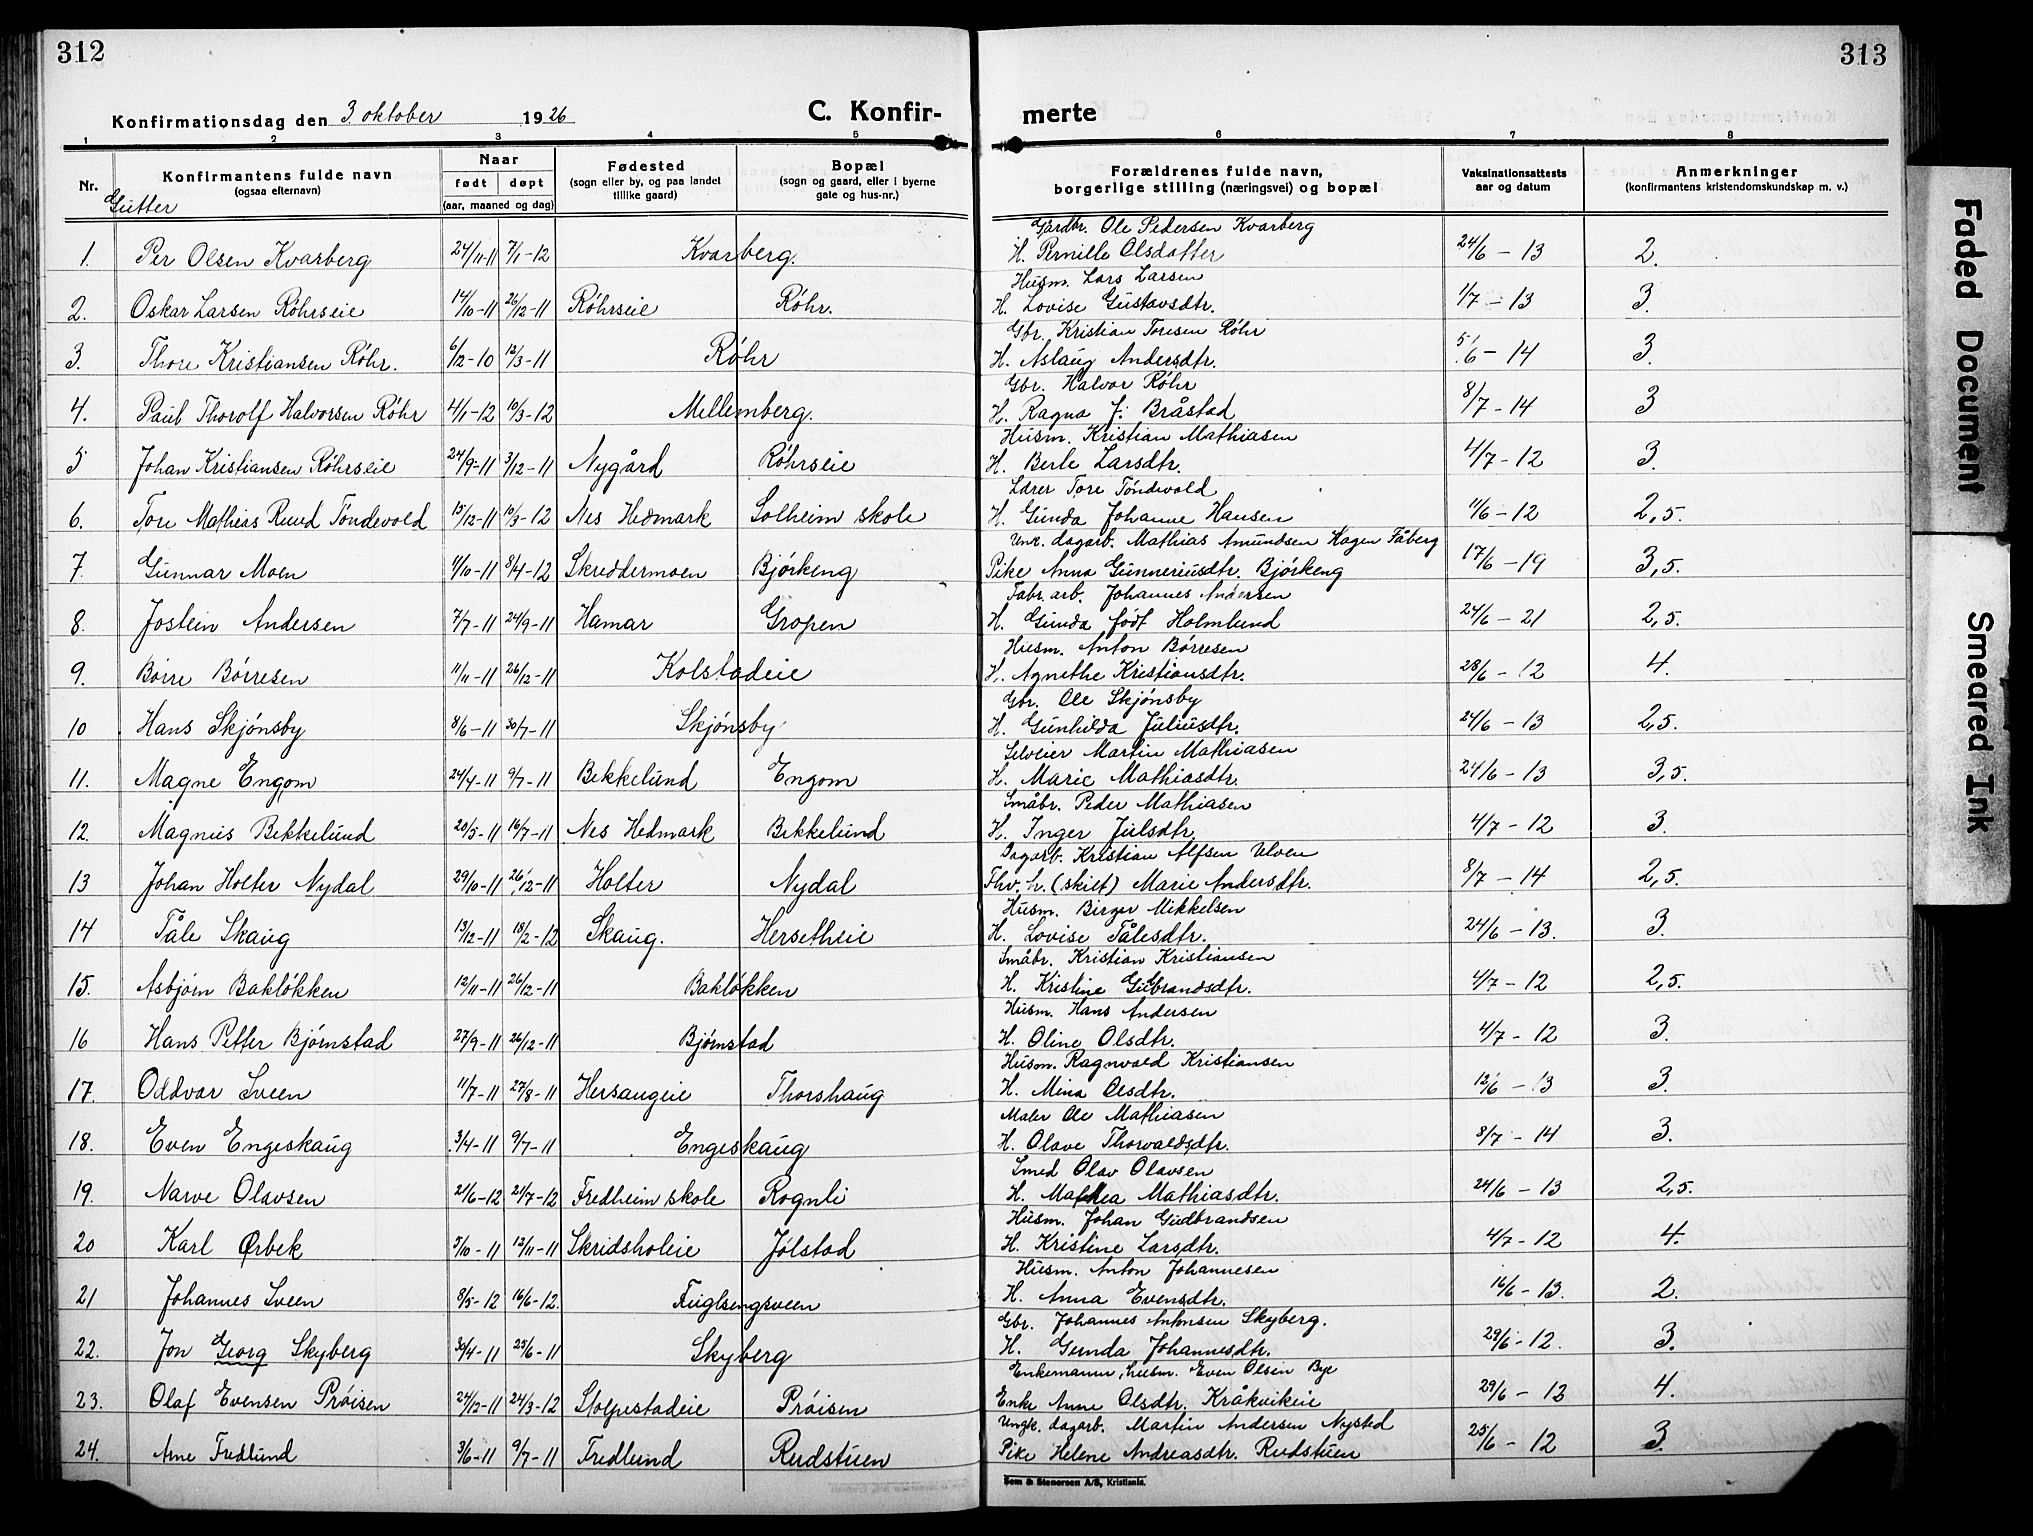 312
313
Konfirmationsdag den 3 oktober 1926
C. Konfir-
merte
1 2 3 4 5 6 7 8
Nr. Konfirmantens fulde navn (ogsaa efternavn)
Naar født døpt (aar, maaned og dag)
Fødested (sogn eller by, og paa landet tillike gaard)
Bopæl (sogn og gaard, eller i byerne gate og hus-nr.)
Forældrenes fulde navn, borgerlige stilling (næringsvei) og bopæl
Vaksinationsattests aar og datum
Anmerkninger (konfirmantens kristendomskundskap m. v.)
Gutter
Gårdbr. Ole Pedersen Kvarberg
1. Per Olsen Kvarberg 24/11-11 7/1-12 Kvarberg. H. Pernille Olsdatter 24/6-13 2.
Husm. Lars Larsen
2. Oskar Larsen Röhrseie 14/10-11 26/12-11 Röhrseie Röhr. H. Lovise Gustavsdtr. 1/7-13 3.
Gbr. Kristian Toresen Röhr
3. Thore Kristiansen Röhr. 6/12-10 12/3-11 Röhr H. Aslaug Andersdtr. 5/6-14 3.
Gbr. Halvor Röhr
4. Paul Thorolf Halvorsen Röhr 4/1-12 10/3-12 Mellemberg. H. Ragna J. Bråstad 8/7-14 3
Husm. Kristian Mathiasen
5 Johan Kristiansen Röhrseie 24/9-11 3/12-11 Nygård Röhrseie H. Berte Larsdtr. 4/7-12 3.
Lærer Tore Töndevold
6. Tore Mathias Ruud Töndevold 15/12-11 10/3-12 Nes Hedmark Solheim skole H. Gunda Johanne Hansen 11/6-12 2,5.
Unk. dagarb. Mathias Amundsen Hagen Fåberg
7. Gunnar Moen 11/10-11 8/4-12 Skreddermoen Bjórkeng Pike Anna Gunneriusdtr. Bjórkeng 17/6-19 3,5.
Fabr. arb. Johannes Andersen
8. Jostein Andersen 7/7-11 24/9-11 Hamar Gropen H. Gunda født Holmlund 24/6-21 2,5.
Husm. Anton Börresen
9. Börre Börresen 11/11-11 26/12-11 Kolstadeie H. Agnethe Kristiansdtr. 28/6-12 4.
Gbr. Ole Skjönsby
10 Hans Skjönsby 8/6-11 30/7-11 Skjönsby H. Gunhilda Juliusdtr. 24/6-13 2,5.
Selveier Martin Mathiasen
11. Magne Engom 24/4-11 9/7-11 Bekkelund Engom H. Marie Mathiasdtr. 24/6-13 3,5.
Småbr. Peder Mathiasen
12. Magnus Bekkelund 20/5-11 16/7-11 Nes Hedmark Bekkelund H. Inger Julsdtr 4/7-12 3.
Dagarb. Kristian Alfsen Ulven
13 Johan Holter Nydal 29/10-11 26/12-11 Holter Nydal Fhv. h. (skilt) Marie Andersdtr. 8/7-14 2,5.
Husm. Birger Mikkelsen
14 Tåle Skaug 13/12-11 18/2-12 Skaug. Hersetheie H. Lovise Tålesdtr. 24/6-13. 3.
Småbr. Kristian Kristiansen
15. Asbjörn Baklökken 12/11-11 26/12-11 Baklökken H. Kristine Gulbrandsdtr. 4/7-12 2,5.
Husm. Hans Andersen
16 Hans Petter Björnstad 27/9-11 26/12-11 Björnstad H. Oline Olsdtr. 4/7-12 3.
Husm. Ragnvald Kristiansen
17. Oddvar Sveen 11/7-11 27/8-11 Hersaugeie Thorshaug H. Mina Olsdtr. 12/6-13 3.
Maler Ole Mathiasen
18. Even Engeskaug 3/4-11 9/7-11 Engeskaug H. Olave Thorvaldsdtr. 8/7-14 3.
Smed Olav Olavsen
19. Narve Olavsen 21/6-12 21/7-12 Fredheim skole Rognli H. Mathea Mathiasdtr. 24/6-13 2,5.
Husm. Johan Gudbrandsen
20 Karl Ørbek 5/10-11 12/11-11 Skridsholeie Jölstad H. Kristine Larsdtr. 4/7-12 4.
Husm. Anton Johannesen
21 Johannes Sveen 8/5-12 16/6-12. Fuglsengsveen H. Anna Evensdtr. 16/6-13. 2.
Gbr. Johannes Antonsen Skyberg.
22. Jon Georg Skyberg 30/4-11 25/6-11 Skyberg H. Gunda Johannesdtr. 29/6-12. 3.
Enkemann, husm. Even Olsen Bye
23. Olaf Evensen Pröisen 24/12-11 24/3-12 Stolpestadeie Pröisen Enke Anne Olsdtr. Kråkvikeie 29/6-12 4.
Ungk. dagarb. Martin Andersen Nysted
24. Arne Fredlund 3/6-11 9/7-11 Fredlund Rudstuen Pike Helene Andreasdtr. Rudstuen 25/6-12 3.
Sem & Stenersen A/S, Kristiania.
Faded Document
Smeared Ink